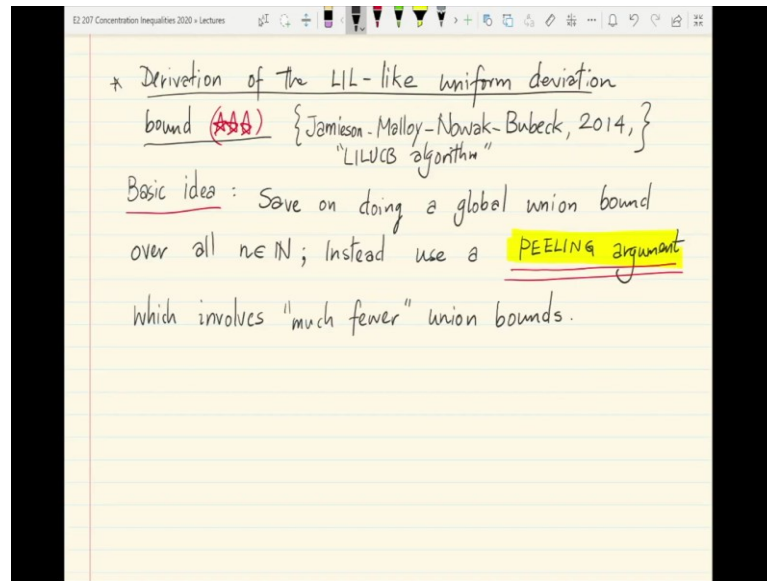 E2 207 Concentration Inequalities 2020 » Lectures
* Derivation of the LIL-like uniform deviation
bound (☆☆☆) {Jamieson-Malloy-Nowak-Bubeck, 2014,}
"LILUCB algorithm"
Basic idea : Save on doing a global union bound
over all n∈ℕ ; Instead use a PEELING argument
which involves "much fewer" union bounds.